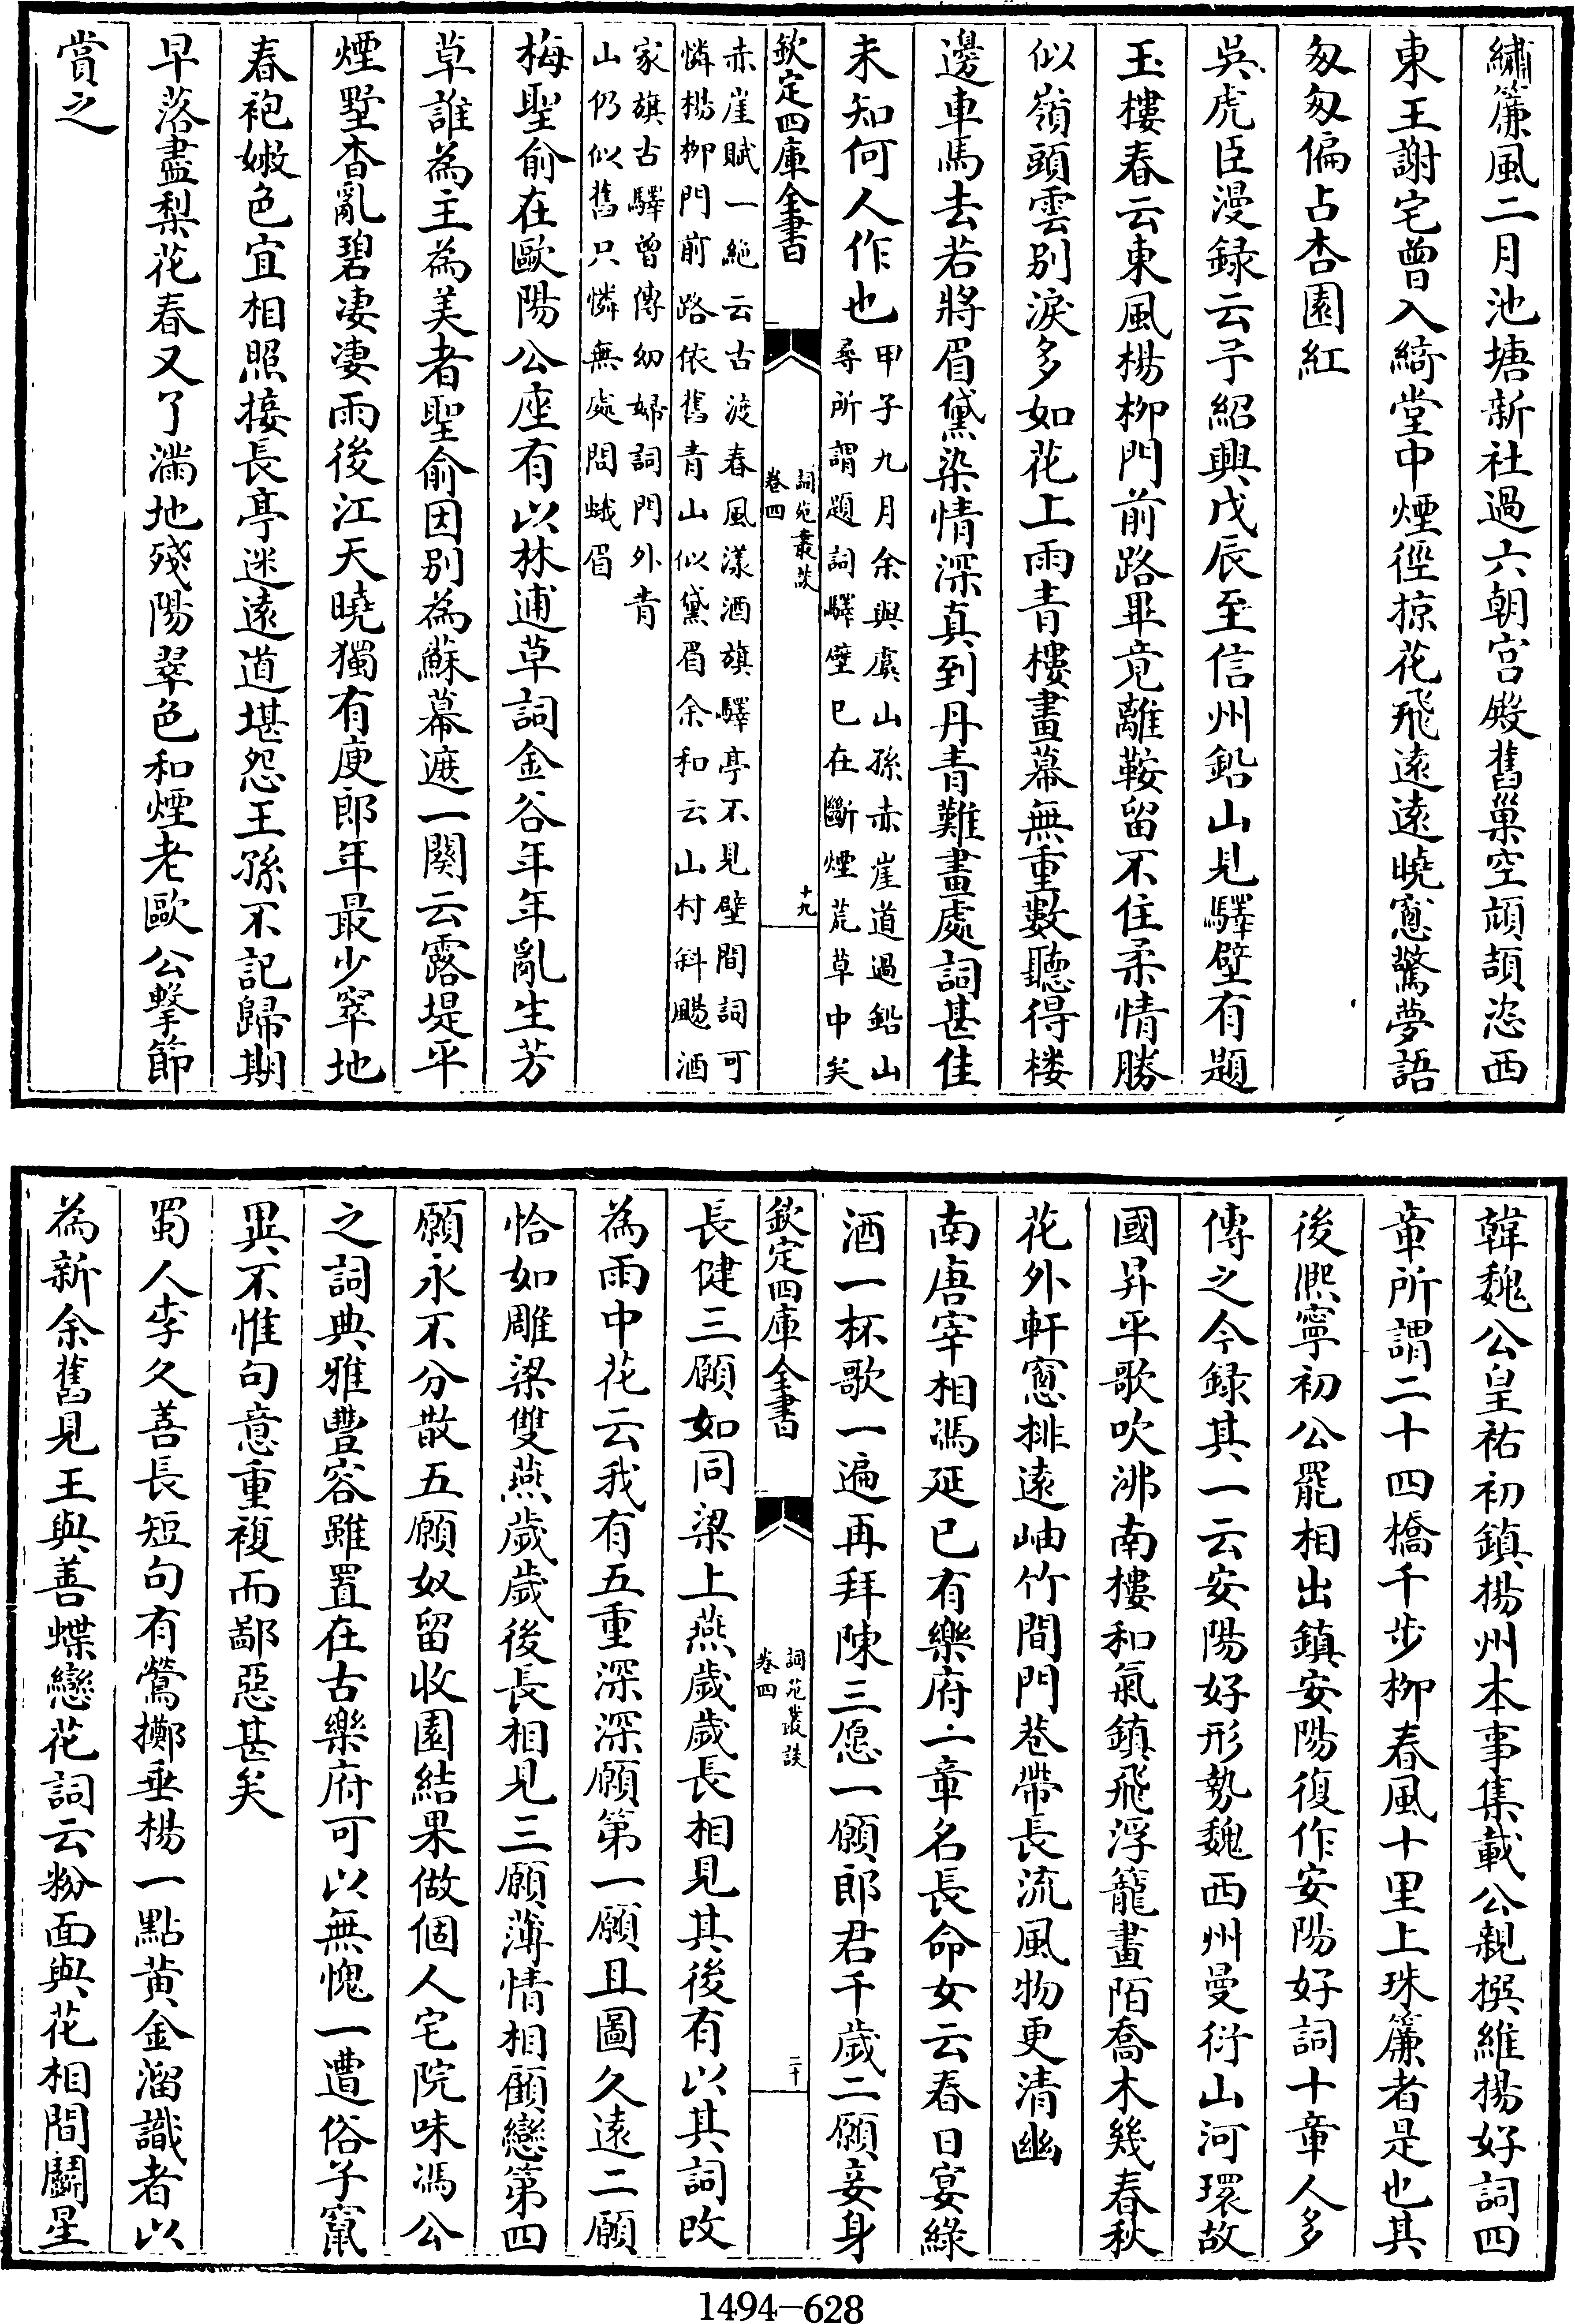 繡簾風二月池塘新社過六朝宮殿舊巢空頡頏恣西
東王謝宅曾入綺堂中煙徑掠花飛遠遠曉窻驚夢語
匆匆偏占杏園紅
吳虎臣漫録云予紹興戊辰至信州鉛山見驛壁有題
玉樓春云東風楊柳門前路畢竟離鞍留不住柔情勝
似嶺頭雲别淚多如花上雨青樓畫幕無重數聽得楼
邊車馬去若將眉黛染情深真到丹青難畫處詞甚佳
未知何人作也甲子九月余與虞山孫赤崖道過鉛山
尋所謂題詞驛壁已在斷煙荒草中矣
欽定四庫全書
詞苑叢談
卷四
十九
赤崖賦一絶云古渡春風漾酒旗驛亭不見壁間詞可
憐楊柳門前路依舊青山似黛眉余和云山村斜颺酒
家旗古驛曾傳幼婦詞門外青
山仍似舊只憐無處問蛾眉
梅聖俞在歐陽公座有以林逋草詞金谷年年亂生芳
草誰為主為美者聖俞因别為蘇幕遮一闋云露堤平
煙墅杳亂碧淒淒雨後江天曉獨有庾郎年最少窣地
春袍嫩色宜相照接長亭迷遠道堪怨王孫不記歸期
早落盡梨花春又了滿地殘陽翠色和煙老歐公擊節
賞之
韓魏公皇祐初鎮揚州本事集載公親撰維揚好詞四
章所謂二十四橋千步柳春風十里上珠簾者是也其
後熈寧初公罷相出鎮安陽復作安陽好詞十章人多
傳之今録其一云安陽好形勢魏西州曼衍山河環故
國昇平歌吹沸南樓和氣鎮飛浮籠畫陌喬木幾春秋
花外軒窻排遠岫竹間門巷帶長流風物更清幽
南唐宰相馮延已有樂府一章名長命女云春日宴綠
酒一杯歌一遍再拜陳三愿一願郎君千歲二願妾身
欽定四庫全書
詞苑叢談
卷四
二十
長健三願如同梁上燕歲歲長相見其後有以其詞改
為雨中花云我有五重深深願第一願且圖久遠二願
恰如雕梁雙燕歲歲後長相見三願薄情相顧戀第四
願永不分散五願奴留收園結果做個人宅院味馮公
之詞典雅豐容雖置在古樂府可以無愧一遭俗子竄
異不惟句意重複而鄙惡甚矣
蜀人李久善長短句有鶯擲垂楊一點黄金溜識者以
為新余舊見王與善蝶戀花詞云粉面與花相間鬬星
1494-628